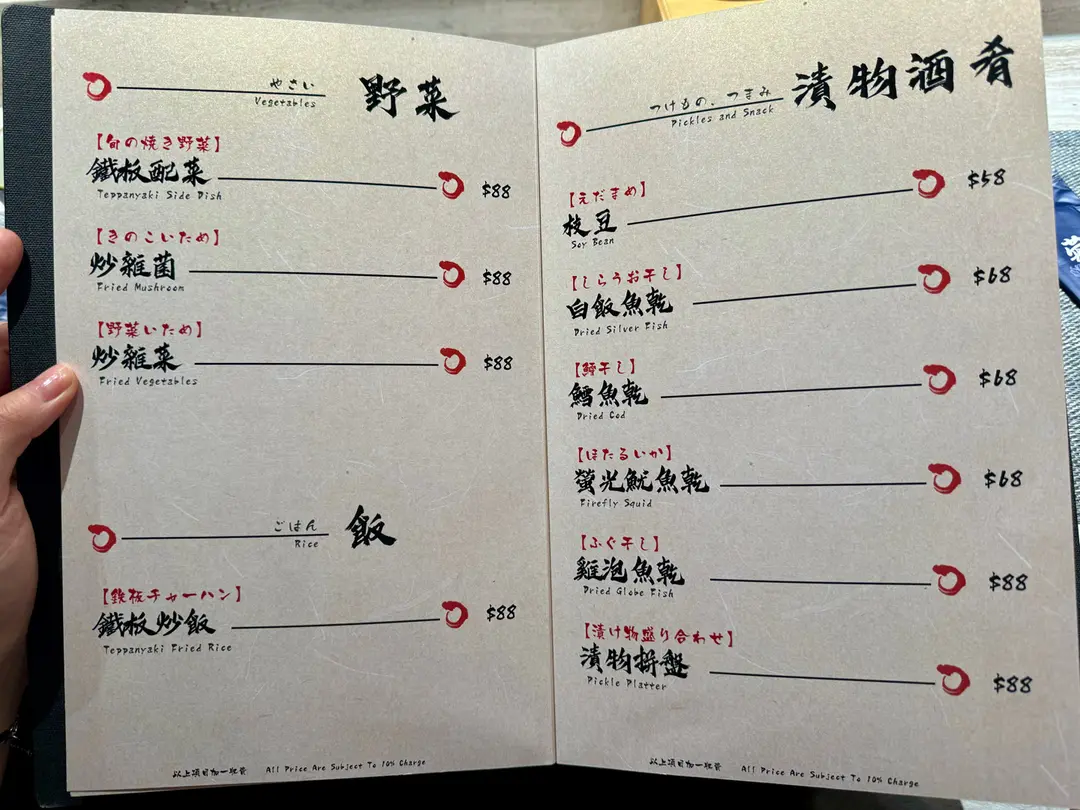 やさい
野菜
Vegetables
【旬の焼き野菜】
鐵板配菜
$88
Teppanyaki Side Dish
【きのこいため】
炒雜菌
$88
Fried Mushroom
【野菜いため】
炒雜菜
$88
Fried Vegetables
ごはん
飯
Rice
【鉄板チャーハン】
鐵板炒飯
$88
Teppanyaki Fried Rice
以上項目加一服務 All Price Are Subject To 10% Charge
つけもの、つまみ
漬物酒肴
Pickles and Snack
【えだまめ】
枝豆
$58
Soy Bean
【しらうお干し】
白飯魚乾
$68
Dried Silver Fish
【鱈干し】
鱈魚乾
$68
Dried Cod
【ほたるいか】
螢光魷魚乾
$68
Firefly Squid
【ふぐ干し】
雞泡魚乾
$88
Dried Globe Fish
【漬け物盛り合わせ】
漬物拼盤
$88
Pickle Platter
以上項目加一服務 All Price Are Subject To 10% Charge